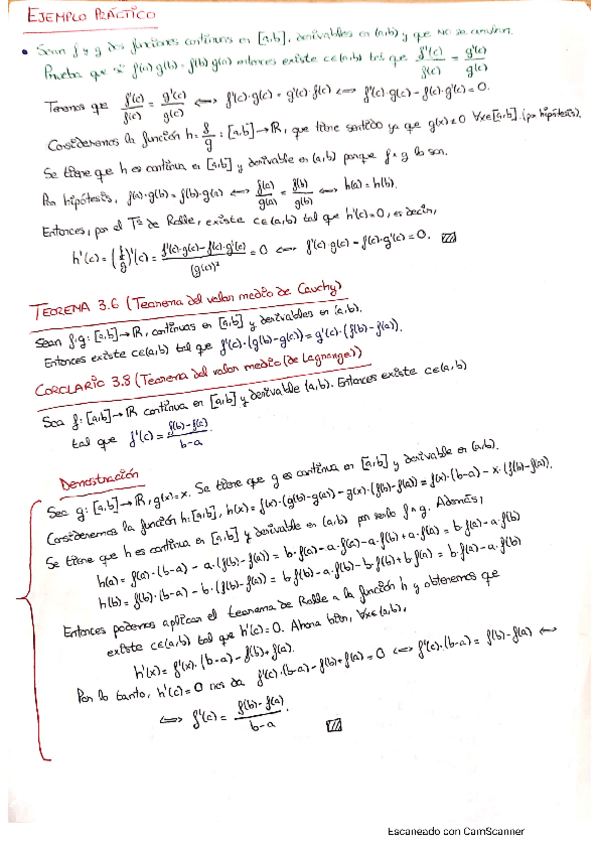 EJEMPLO PRÁCTICO
• Sean f y g dos funciones continuas en [a,b], derivables en (a,b) y que no se anulan.
Prueba que si f(a)·g(b) = f(b)·g(a) entonces existe c∈(a,b) tal que f'(c)/f(c) = g'(c)/g(c)
Tenemos que f'(c)/f(c) = g'(c)/g(c) ⟺ f'(c)·g(c) = g'(c)·f(c) ⟺ f'(c)·g(c) - f(c)·g'(c) = 0.
Consideremos la función h = f/g : [a,b]→ℝ, que tiene sentido ya que g(x)≠0 ∀x∈[a,b] (por hipótesis).
Se tiene que h es continua en [a,b] y derivable en (a,b) porque f y g lo son.
Por hipótesis, f(a)·g(b) = f(b)·g(a) ⟺ f(a)/g(a) = f(b)/g(b) ⟺ h(a) = h(b).
Entonces, por el Tª de Rolle, existe c∈(a,b) tal que h'(c)=0, es decir,
h'(c) = (f/g)'(c) = f'(c)·g(c) - f(c)·g'(c)/(g(c))² = 0 ⟺ f'(c)·g(c) - f(c)·g'(c) = 0.
TEOREMA 3.6 (Teorema del valor medio de Cauchy)
Sean f,g: [a,b]→ℝ, continuas en [a,b] y derivables en (a,b).
Entonces existe c∈(a,b) tal que f'(c)·(g(b)-g(a)) = g'(c)·(f(b)-f(a)).
COROLARIO 3.8 (Teorema del valor medio (de Lagrange))
Sea f: [a,b]→ℝ continua en [a,b] y derivable (a,b). Entonces existe c∈(a,b)
tal que f'(c) = f(b)-f(a)/b-a.
Demostración
Sea g: [a,b]→ℝ, g(x)=x. Se tiene que g es continua en [a,b] y derivable en (a,b).
Consideremos la función h: [a,b], h(x) = f(x)·(g(b)-g(a)) - g(x)·(f(b)-f(a)) = f(x)·(b-a) - x·(f(b)-f(a)).
Se tiene que h es continua en [a,b] y derivable en (a,b) por serlo f y g. Además,
h(a) = f(a)·(b-a) - a·(f(b)-f(a)) = b·f(a) - a·f(a) - a·f(b) + a·f(a) = b·f(a) - a·f(b)
h(b) = f(b)·(b-a) - b·(f(b)-f(a)) = b·f(b) - a·f(b) - b·f(b) + b·f(a) = b·f(a) - a·f(b)
Entonces podemos aplicar el teorema de Rolle a la función h y obtenemos que
existe c∈(a,b) tal que h'(c)=0. Ahora bien, ∀x∈(a,b),
h'(x) = f'(x)·(b-a) - f(b) + f(a).
Por lo tanto, h'(c)=0 nos da f'(c)·(b-a) - f(b) + f(a) = 0 ⟺ f'(c)·(b-a) = f(b) - f(a) ⟺
⟺ f'(c) = f(b)-f(a)/b-a.
Escaneado con CamScanner